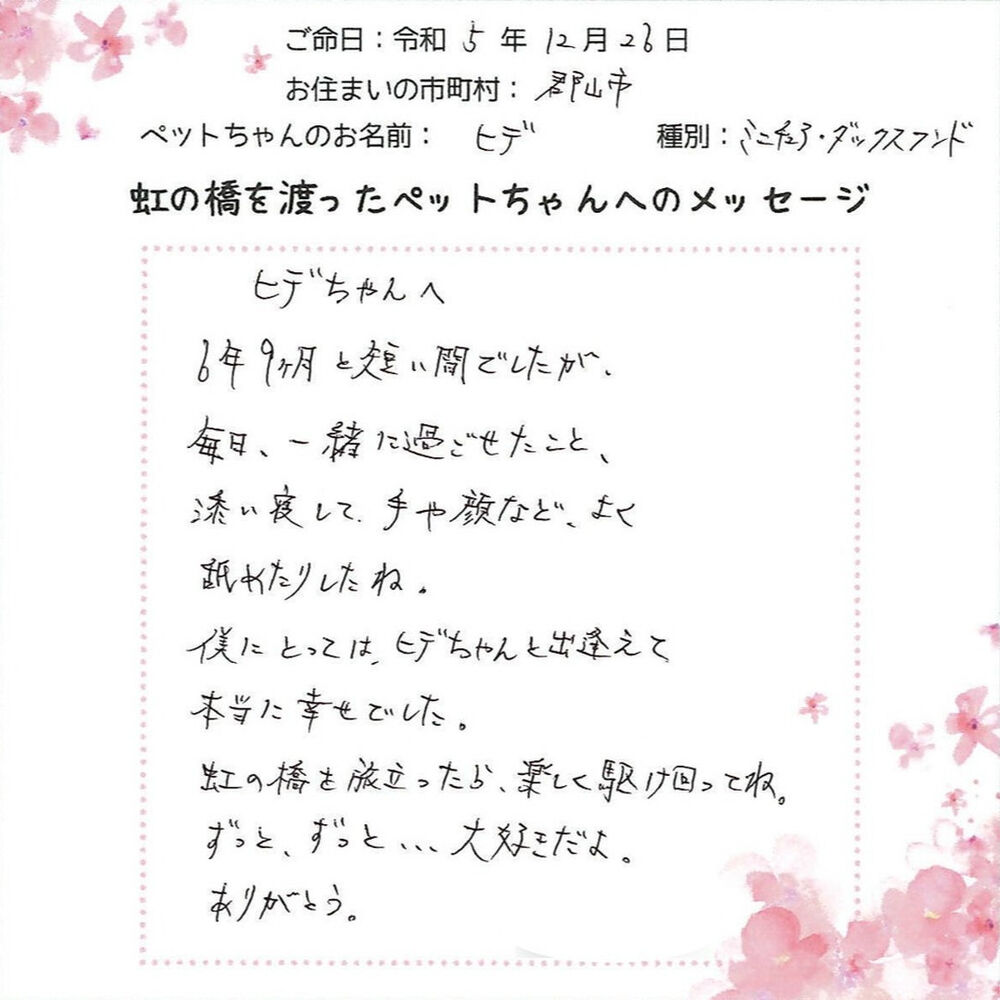 ご命日：令和 5 年 12月26日
お住まいの市町村： 郡山市
ペットちゃんのお名前： ヒデ 種別：ミニチュア・ダックスフンド
虹の橋を渡ったペットちゃんへのメッセージ
ヒデちゃんへ
6年9ヶ月と短い間でしたが、
毎日、一緒に過ごせたこと、
添い寝して、手や顔など、よく
舐めたりしたね。
僕にとっては、ヒデちゃんと出逢えて
本当に幸せでした。
虹の橋を旅立ったら、楽しく駆け回ってね。
ずっと、ずっと…大好きだよ。
ありがとう。